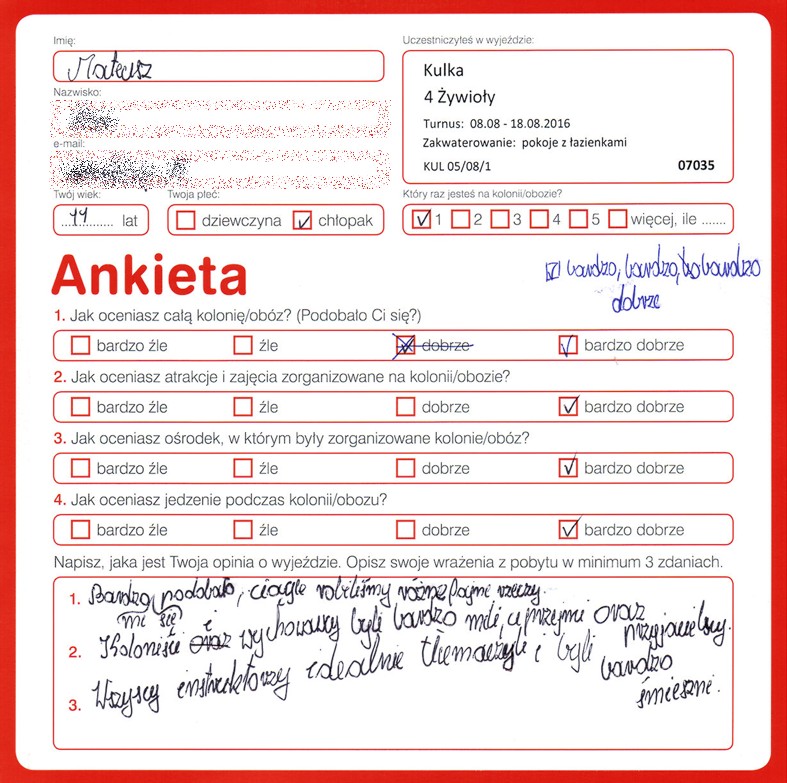 Imię:
Mateusz
Uczestniczyłeś w wyjeździe:
Kulka
4 Żywioły
Turnus: 08.08 - 18.08.2016
Zakwaterowanie: pokoje z łazienkami
KUL 05/08/1 07035
Nazwisko:
e-mail:
Twój wiek:
11 lat
Twoja płeć:
dziewczyna chłopak
Który raz jesteś na kolonii/obozie?
1 2 3 4 5 więcej, ile .......
Ankieta
bardzo, bardzo, bardzo
dobrze
1. Jak oceniasz całą kolonię/obóz? (Podobało Ci się?)
bardzo źle źle dobrze bardzo dobrze
2. Jak oceniasz atrakcje i zajęcia zorganizowane na kolonii/obozie?
bardzo źle źle dobrze bardzo dobrze
3. Jak oceniasz ośrodek, w którym były zorganizowane kolonie/obóz?
bardzo źle źle dobrze bardzo dobrze
4. Jak oceniasz jedzenie podczas kolonii/obozu?
bardzo źle źle dobrze bardzo dobrze
Napisz, jaka jest Twoja opinia o wyjeździe. Opisz swoje wrażenia z pobytu w minimum 3 zdaniach.
1. Bardzo podobało, ciągle robiliśmy różne fajne rzeczy.
mi się
2. Koloniści oraz i wychowawcy byli bardzo mili, uprzejmi oraz
przyjacielscy.
3. Wszyscy instruktorzy idealnie tłumaczyli i byli bardzo
śmieszni.